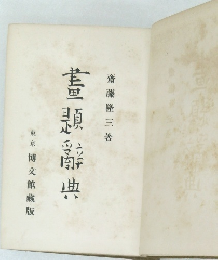 齋藤隆三著
畫題辭典
東京 博文館藏版